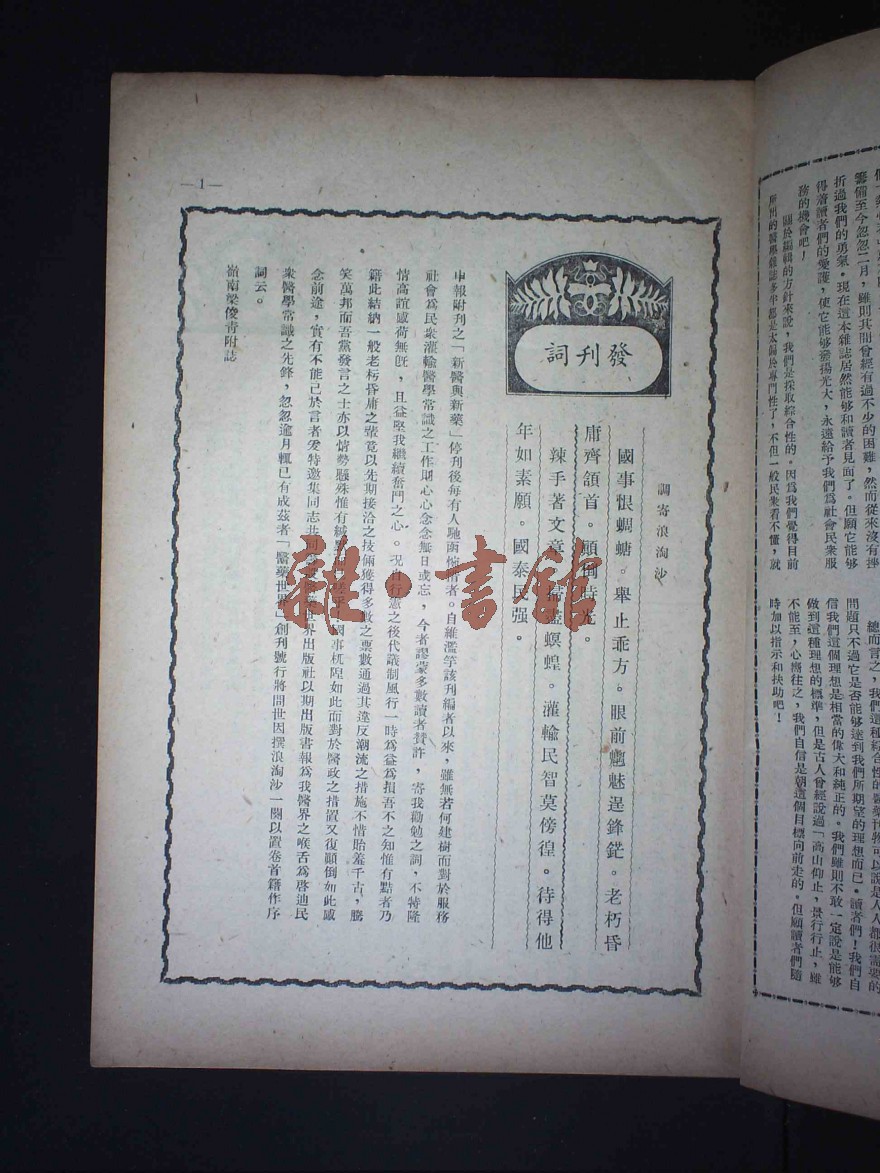 個
籌備至今忽忽二月，雖則其間曾經有過不少的困難，然而從來沒有挫
折過我們的勇氣。現在這本雜誌居然能夠和讀者見面了。但願它能夠
得着讀者們的愛護，使它能够發揚光大，永遠給予我們爲社會民衆服
務的機會吧！
關於編輯的方針來說，我們是採取綜合性的。因爲我們覺得目前
所出的醫學雜誌多半都是太偏於專門性了，不但一般民衆看不懂，就
總而言之，我們這種綜合性的醫藥刊物可以說是人人都很需要的
問題只不過它是否能够達到我們所期望的理想而已。讀者們！我們自
信我們這個理想是相當的偉大和純正的。我們雖則不敢一定說是能够
做到這種理想的標準，但是古人曾經說過「高山仰止，景行行止，雖
不能至，心嚮往之，我們自信是朝這個目標向前走的。但願讀者們隨
時加以指示和扶助吧！
—1—
發刊詞
調寄浪淘沙
國事恨蜩螗。舉止乖方。眼前魑魅逞鋒鋩。老朽昏
庸齊領首。顛倒時光。
辣手著文章。掃盡螟蝗。灌輸民智莫傍徨。待得他
年如素願。國泰民强。
申報附刊之「新醫與新藥」停刊後每有人馳函惋惜者。自維濫竽該刊編者以來，雖無若何建樹而對於服務
社會爲民衆灌輸醫學常識之工作則心心念念無日或忘，今者謬蒙多數讀者贊許，寄我勸勉之詞，不特隆
情高誼感荷無旣，且益堅我繼續奮鬥之心。況自行憲之後代議制風行一時爲益爲損吾不之知惟有黠者乃
籍此結納一般老朽昏庸之輩竟以先期接洽之技倆獲得多數之票數通過其違反潮流之措施不惜貽羞千古，騰
笑萬邦而吾黨發言之士亦以情勢懸殊惟有緘默 國事杌隉如此而對於醫政之措置又復顛倒如此感
念前途，實有不能已於言者爰特邀集同志共同 世界出版社以期出版書報爲我醫界之喉舌爲啓迪民
衆醫學常識之先鋒，忽忽逾月輒已有成茲者「醫藥世界」創刊號行將問世因撰浪淘沙一闋以置卷首籍作序
詞云。
嶺南梁俊青附誌
雜·書館